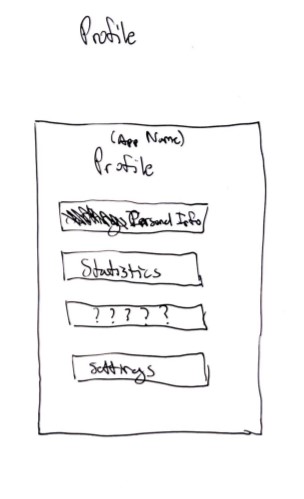 Profile
(App Name)
Profile
Personal Info
Statistics
? ? ? ? ?
Settings